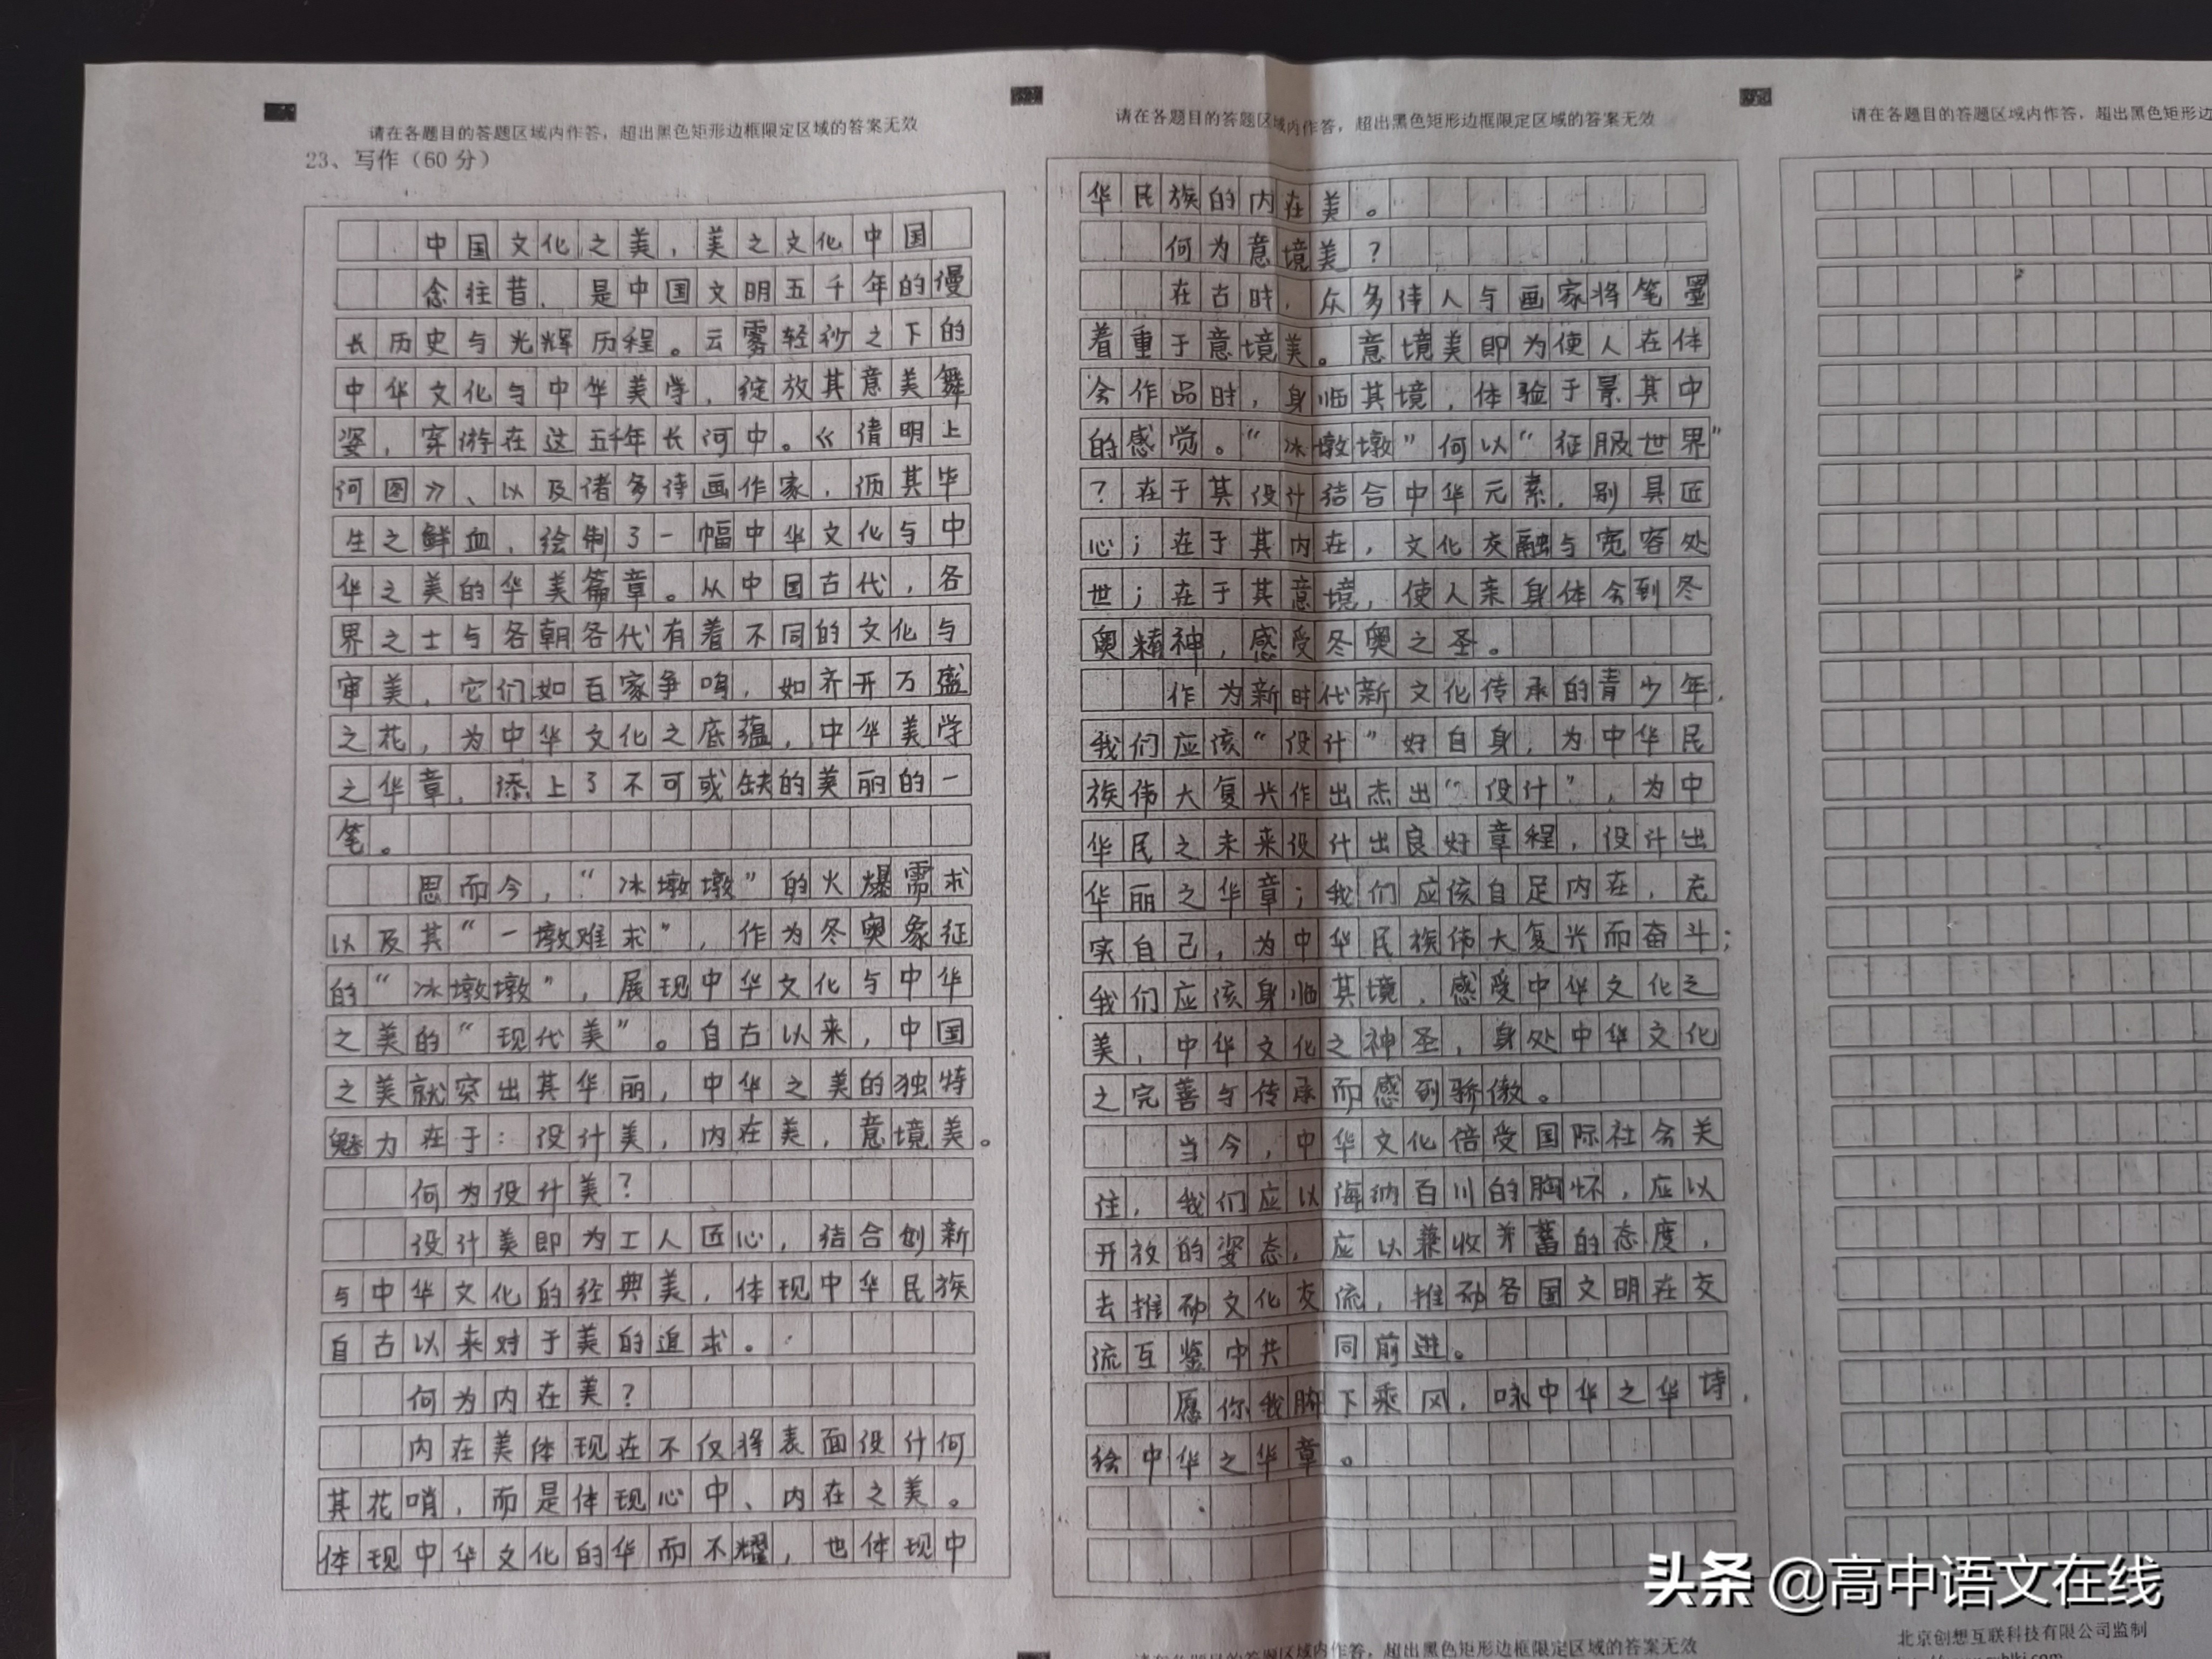 请在各题目的答题区域内作答，超出黑色矩形边框限定区域的答案无效
23、写作（60分）
中国文化之美，美之文化中国
念往昔、是中国文明五千年的僈
长历史与光辉历程。云雾轻纱之下的
中华文化与中华美学，绽放其意美舞
姿，穿游在这五千年长河中。《清明上
河图》、以及诸多诗画作家，沥其毕
生之鲜血，绘制了一幅中华文化与中
华之美的华美篇章。从中国古代，各
界之士与各朝各代有着不同的文化与
审美，它们如百家争鸣，如齐开万盛
之花，为中华文化之底蕴，中华美学
之华章，添上了不可或缺的美丽的一
笔。
思而今，“冰墩墩”的火爆需求
以及其“一墩难求”，作为冬奥象征
的“冰墩墩”，展现中华文化与中华
之美的“现代美”。自古以来，中国
之美就突出其华丽，中华之美的独特
魅力在于：设计美，内在美，意境美。
何为设计美？
设计美即为工人匠心，结合创新
与中华文化的经典美，体现中华民族
自古以来对于美的追求。
何为内在美？
内在美体现在不仅将表面设计何
其花哨，而是体现心中、内在之美。
体现中华文化的华而不耀，也体现中
请在各题目的答题区域内作答，超出黑色矩形边框限定区域的答案无效
华民族的内在美。
何为意境美？
在古时，众多诗人与画家将笔墨
着重于意境美。意境美即为使人在体
会作品时，身临其境，体验于景其中
的感觉。“冰墩墩”何以“征服世界”
？在于其设计结合中华元素，别具匠
心；在于其内在，文化交融与宽容处
世；在于其意境，使人亲身体会到冬
奥精神，感受冬奥之圣。
作为新时代新文化传承的青少年，
我们应该“设计”好自身，为中华民
族伟大复兴作出杰出“设计”，为中
华民之未来设计出良好章程，设计出
华丽之华章；我们应该自足内在，充
实自己，为中华民族伟大复兴而奋斗；
我们应该身临其境，感受中华文化之
美，中华文化之神圣，身处中华文化
之完善与传承而感到骄傲。
当今，中华文化倍受国际社会关
注，我们应以海纳百川的胸怀，应以
开放的姿态，应以兼收并蓄的态度，
去推动文化交流，推动各国文明在交
流互鉴中共同前进。
愿你我腑下乘风，咏中华之华诗，
绘中华之华章。
请在各题目的答题区域内作答，超出黑色矩形边框限定区域的答案无效
请在各题目的答题区域内作答，超出黑色矩形边
头条 @高中语文在线
北京创想互联科技有限公司监制